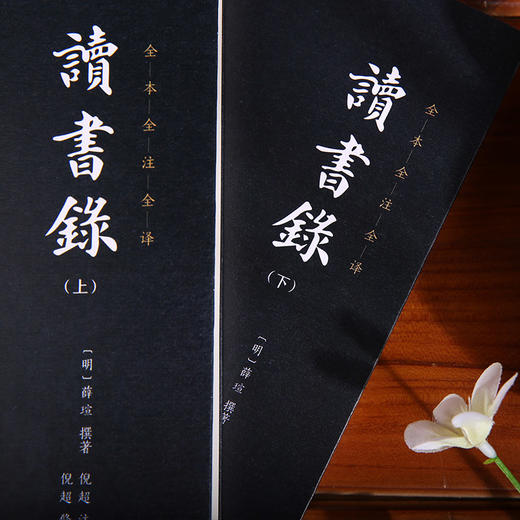 讀書錄
(上)
全—本—全—注—全—译
〔明〕薛瑄 撰著
倪超
倪超
讀書錄
(下)
全—本—全—注—全—译
〔明〕薛瑄 撰著